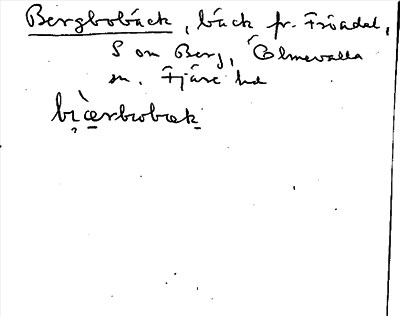 Bergbobäck, bäck fr. Fröadal,
S om Berg, Ölmevalla
sn. Fjäre hd